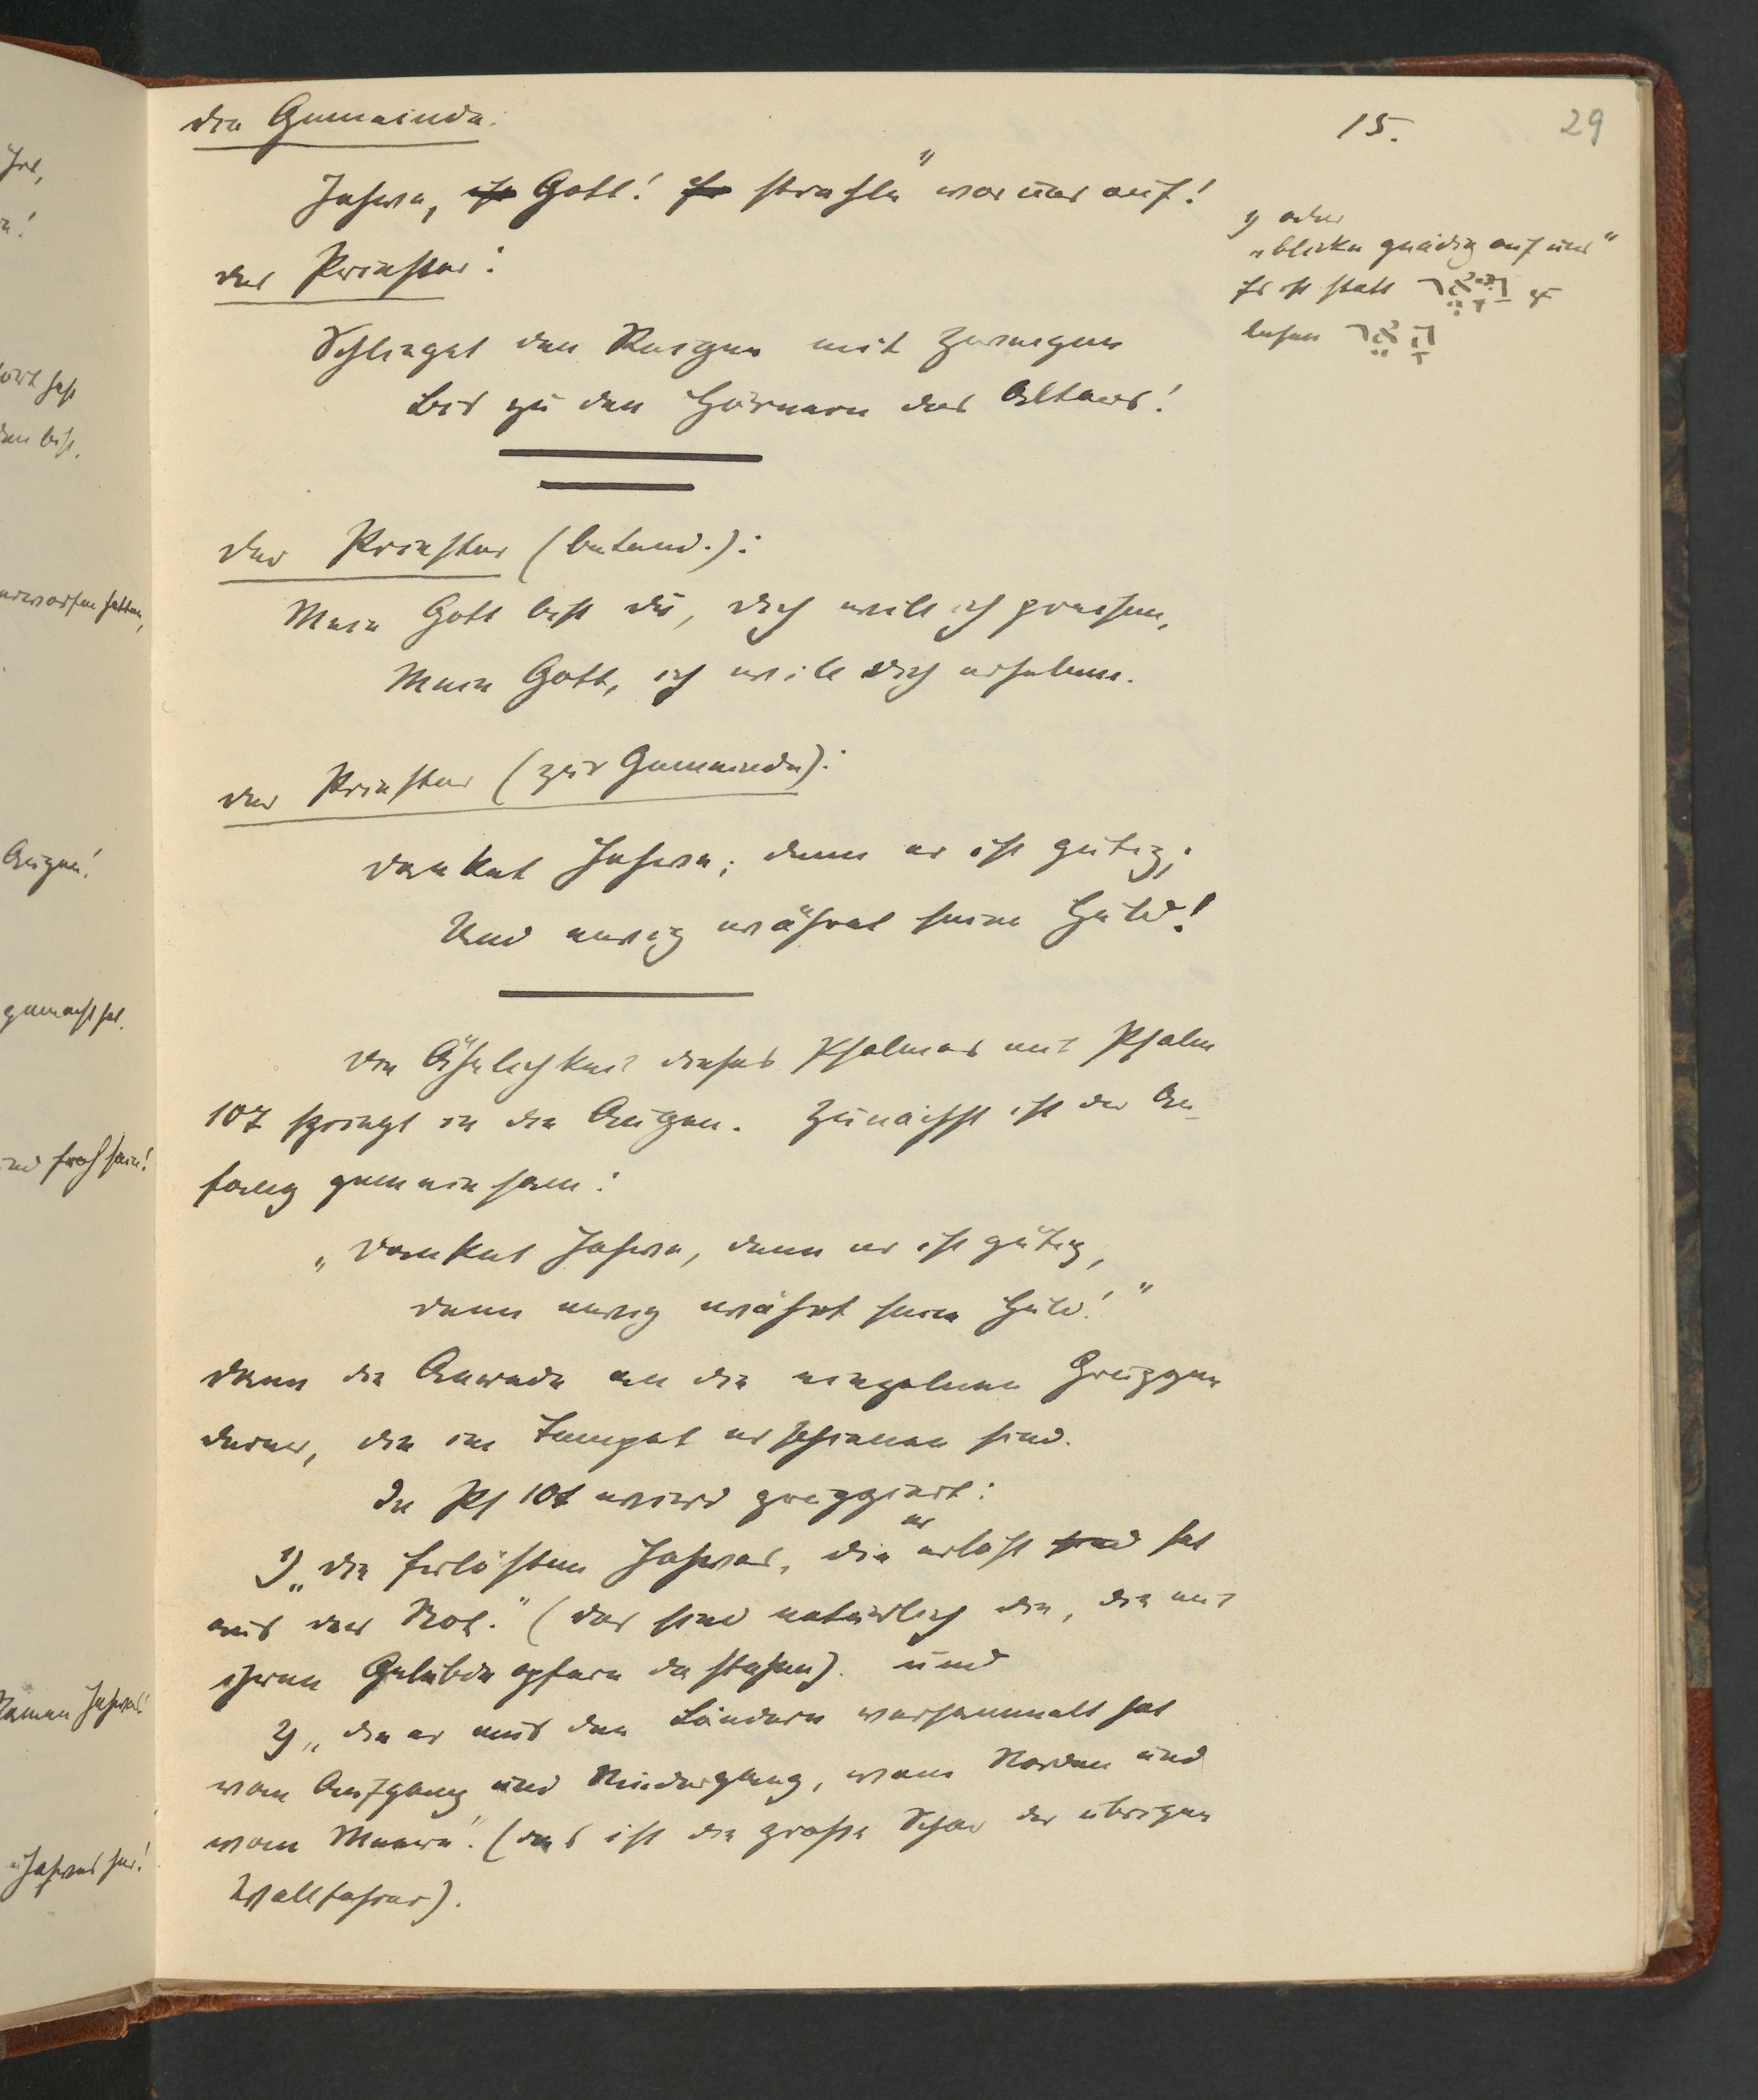 15.
29
Die Gemeinde:
Jahwe, ist Gott! Er strahle 1) vor uns auf!
1) oder
„blicke gnädig auf uns"
Es ist statt
lesen הָאֵר
Der Priester:
Schlinget den Reigen mit Zweigen
Bis zu den Hörnern des Altars!
Der Priester (betend.):
Mein Gott bist du, dich will ich preisen,
Mein Gott, ich will dich erheben.
Der Priester (zur Gemeinde):
Danket Jahwe; denn er ist gütig;
Und ewig währet seine Huld!
Die Ähnlichkeit dieses Psalmes mit Psalm
107 springt in die Augen. Zunächst ist der An-
fang gemeinsam:
„Danket Jahwe, denn er ist gütig,
denn ewig währt seine Huld!"
Dann die Anrede an die einzelnen Gruppen
derer, die im Tempel erschienen sind.
In Ps 107 wird gruppiert:
1) „die Erlösten Jahwes, die er erlöst sind hat
aus der Not." (das sind natürlich die, die mit
ihren Gelübdeopfern da stehen). und
2) „die er aus den Ländern versammelt hat
vom Aufgang und Niedergang, vom Norden und
vom Meere". (das ist die große Schar der übrigen
Wallfahrer).